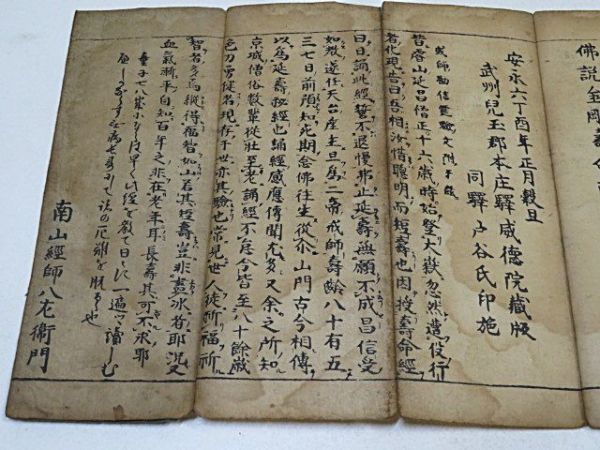 佛説金剛壽命
安永六丁酉年正月穀旦
武州兒玉郡本庄驛威德院藏版
同驛戸谷氏印施
昔睿山延昌僧正十六歳時始登大嶽忽然遭役行
者化現告曰吾相汝惜聰明而短壽也因授壽命經
曰日誦此經誓不退慢弗止延壽無願不成昌信受
如教遂任天台座主且爲二帝戒師壽齡八十有五
三七日前預知死期念佛往生從尒山門古今相傳
以為延壽秘經也誦經感應傳聞尤多又余之所知
京城僧俗數輩從壯至老誦經不怠今皆至八十餘歳
色力勇健名現存于世亦其驗也常見世人徒祈福祈
智者多焉縱得福智如山若其短壽豈非畫冰谷耶況又
血氣將平自知百年之非在老年耳長壽其可不求耶
南山經師八左衛門